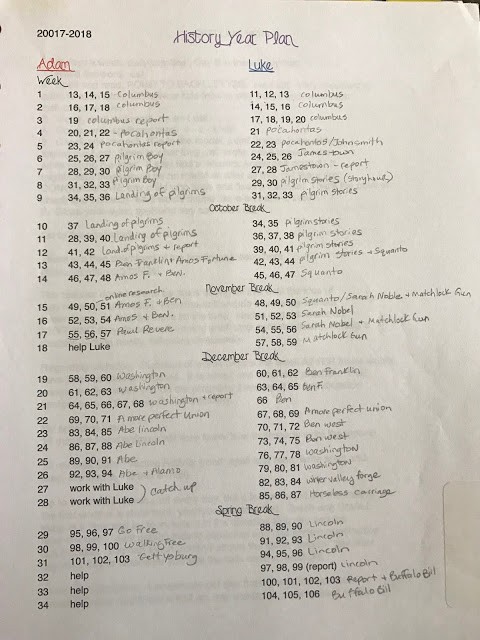 20017-2018 History Year Plan
Adam Luke
Week
1 13, 14, 15 Columbus 11, 12, 13 Columbus
2 16, 17, 18 Columbus 14, 15, 16 Columbus
3 19 Columbus report 17, 18, 19, 20 Columbus
4 20, 21, 22 - Pocahontas 21 Pocahontas
5 23, 24 Pocahontas report 22, 23 Pocahontas/John Smith
6 25, 26, 27 Pilgrim Boy 24, 25, 26 Jamestown
7 28, 29, 30 Pilgrim Boy 27, 28 Jamestown - report
8 31, 32, 33 Pilgrim Boy 29, 30 Pilgrim Stories (Storyhour)
9 34, 35, 36 Landing of Pilgrims 31, 32, 33 Pilgrim Stories
October Break
10 37 Landing of Pilgrims 34, 35 Pilgrim Stories
11 28, 39, 40 Landing of Pilgrims 36, 37, 38 Pilgrim Stories
12 41, 42 Land. of Pilgrims + report 39, 40, 41 Pilgrim Stories
13 43, 44, 45 Ben Franklin + Amos Fortune 42, 43, 44 Pilgrim Stories + Squanto
14 46, 47, 48 Amos F. + Ben. 45, 46, 47 Squanto
November Break
online research
15 49, 50, 51 Amos F. + Ben 48, 49, 50 Squanto/Sarah Noble + Matchlock Gun
16 52, 53, 54 Amos + Ben. 51, 52, 53 Sarah Nobel
17 55, 56, 57 Paul Revere 54, 55, 56 Sarah Nobel + Matchlock Gun
18 help Luke 57, 58, 59 Matchlock Gun
December Break
19 58, 59, 60 Washington 60, 61, 62 Ben Franklin
20 61, 62, 63 Washington 63, 64, 65 Ben F.
21 64, 65, 66, 67, 68 Washington + report 66 Ben
22 69, 70, 71 A more perfect Union 67, 68, 69 A more perfect union
23 83, 84, 85 Abe Lincoln 70, 71, 72 Ben West
24 86, 87, 88 Abe Lincoln 73, 74, 75 Ben West
25 89, 90, 91 Abe 76, 77, 78 Washington
26 92, 93, 94 Abe + Alamo 79, 80, 81 Washington
27 work with Luke ) catch up 82, 83, 84 Winter Valley Forge
28 work with Luke 85, 86, 87 Horseless carriage
Spring Break
29 95, 96, 97 Go Free 88, 89, 90 Lincoln
30 98, 99, 100 Walking Free 91, 92, 93 Lincoln
31 101, 102, 103 Gettysburg 94, 95, 96 Lincoln
32 help 97, 98, 99 (report) Lincoln
33 help 100, 101, 102, 103 Report + Buffalo Bill
34 help 104, 105, 106 Buffalo Bill